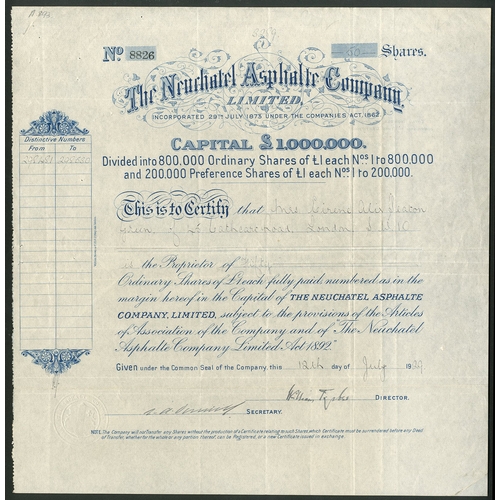 Nº 8826
50 Shares.
The Neuchatel Asphalte Company,
LIMITED,
INCORPORATED 29TH JULY 1873 UNDER THE COMPANIES ACT, 1862.
CAPITAL £1,000,000.
Divided into 800.000 Ordinary Shares of £1 each Nºs 1 to 800.000
and 200.000 Preference Shares of £1 each Nºs 1 to 200.000.
Distinctive Numbers
From To
This is to Certify that Mrs
of Cathcart road, London S.W.10
is the Proprietor of Fifty
Ordinary Shares of £1 each fully paid, numbered as in the
margin hereof in the Capital of THE NEUCHATEL ASPHALTE
COMPANY, LIMITED, subject to the provisions of the Articles
of Association of the Company and of "The Neuchatel
Asphalte Company Limited Act 1892".
Given under the Common Seal of the Company, this 12th day of July 1937
DIRECTOR.
SECRETARY.
NOTE. The Company will not Transfer any Shares without the production of a Certificate relating to such Shares which Certificate must be surrendered before any Deed
of Transfer, whether for the whole or any portion thereof, can be Registered, or a new Certificate issued in exchange.